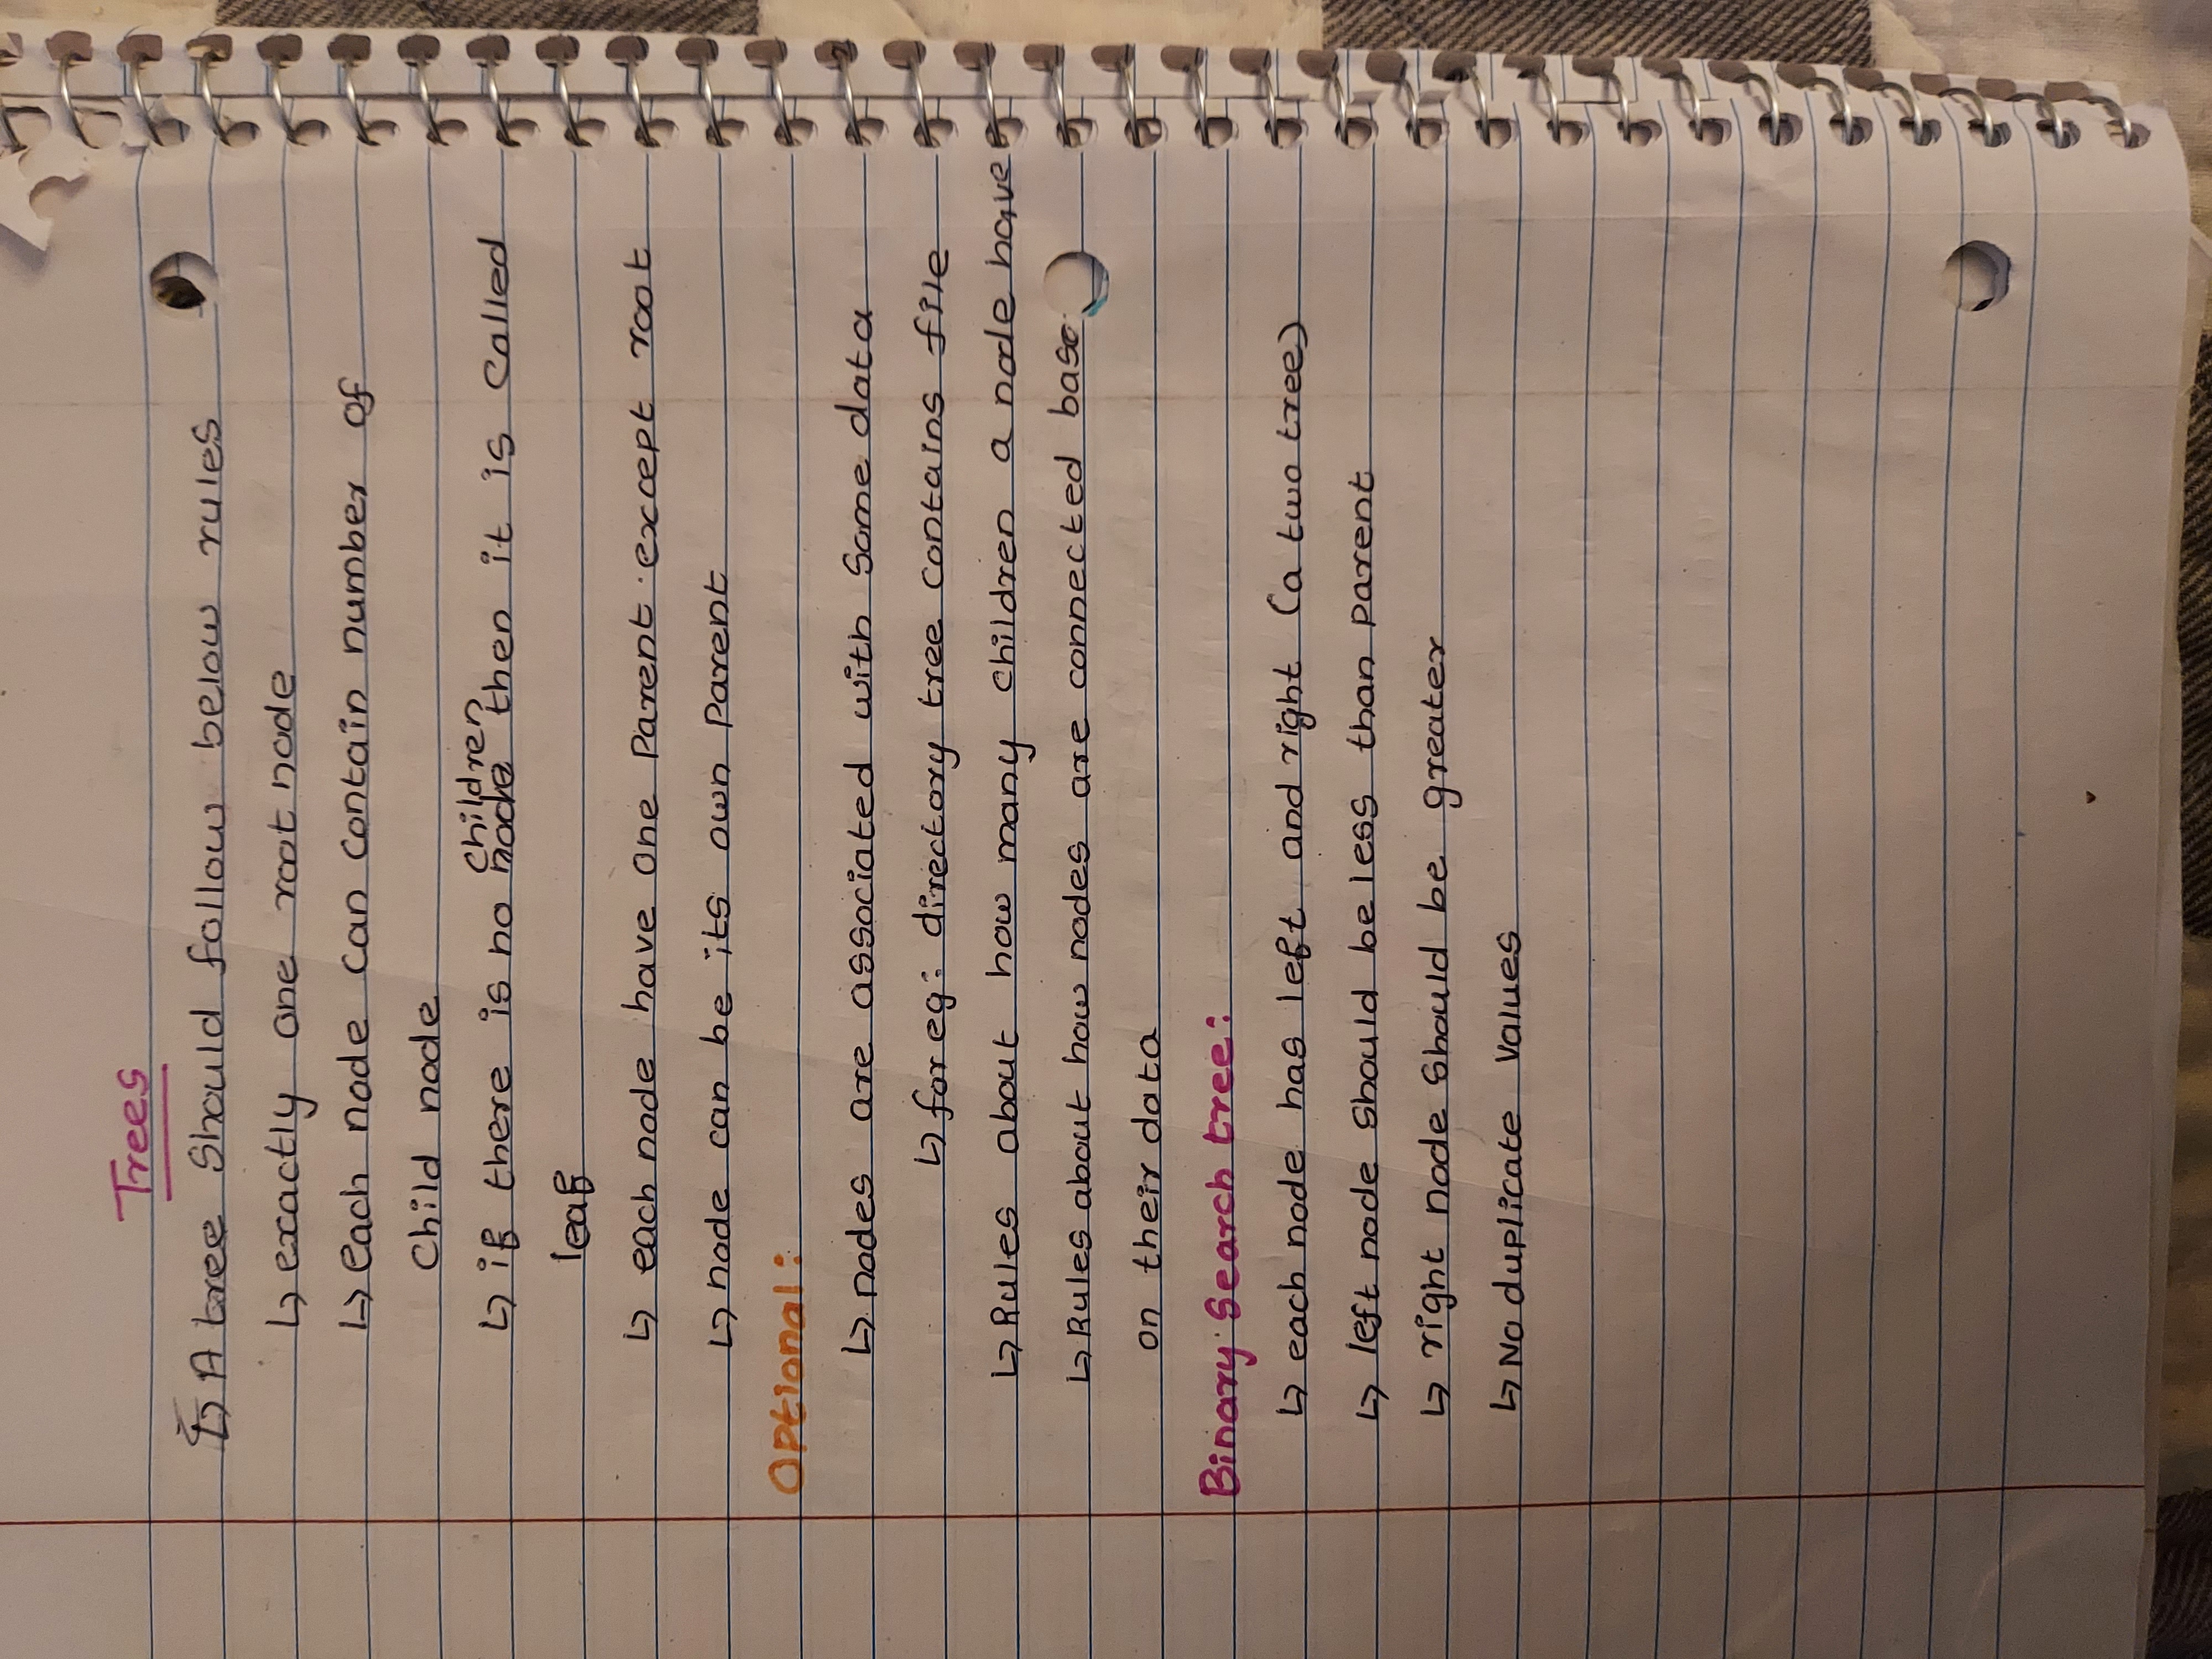 Trees
↳ A tree should follow below rules
↳ exactly one root node
↳ each node can contain number of
child node
children
↳ if there is no node then it is called
leaf
↳ each node have one parent except root
↳ node can be its own parent
Optional:
↳ nodes are associated with some data
↳ for eg: directory tree contains file
↳ Rules about how many children a node have
↳ Rules about how nodes are connected base
on their data
Binary Search tree:
↳ each node has left and right (a two tree)
↳ left node should be less than parent
↳ right node should be greater
↳ No duplicate values